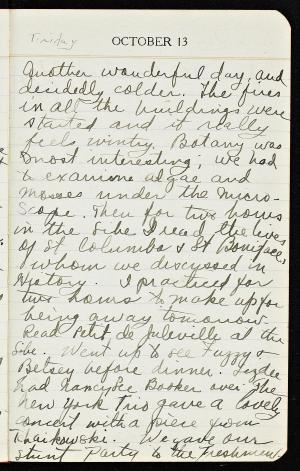 Friday
OCTOBER 13
Another wonderful day, and
decidedly colder. The fires
in all the buildings were
started and it really
feels wintry. Botany was
most interesting; we had
to examine algae and
mosses under the micro-
scope. Then for two hours
in the Libe I read the lives
of St Columba & St Boniface,
whom we discussed in
History. I practiced for
two hours to make up for
being away tomorrow.
Read Petit de Juleville at the
Libe. Went up to see Fuzzy &
Betsey before dinner.
had Nancy Lee Booker over. The
New York Trio gave a lovely
concert with a piece from
Tchaikowski. We gave our
stunt Party to the Freshmen